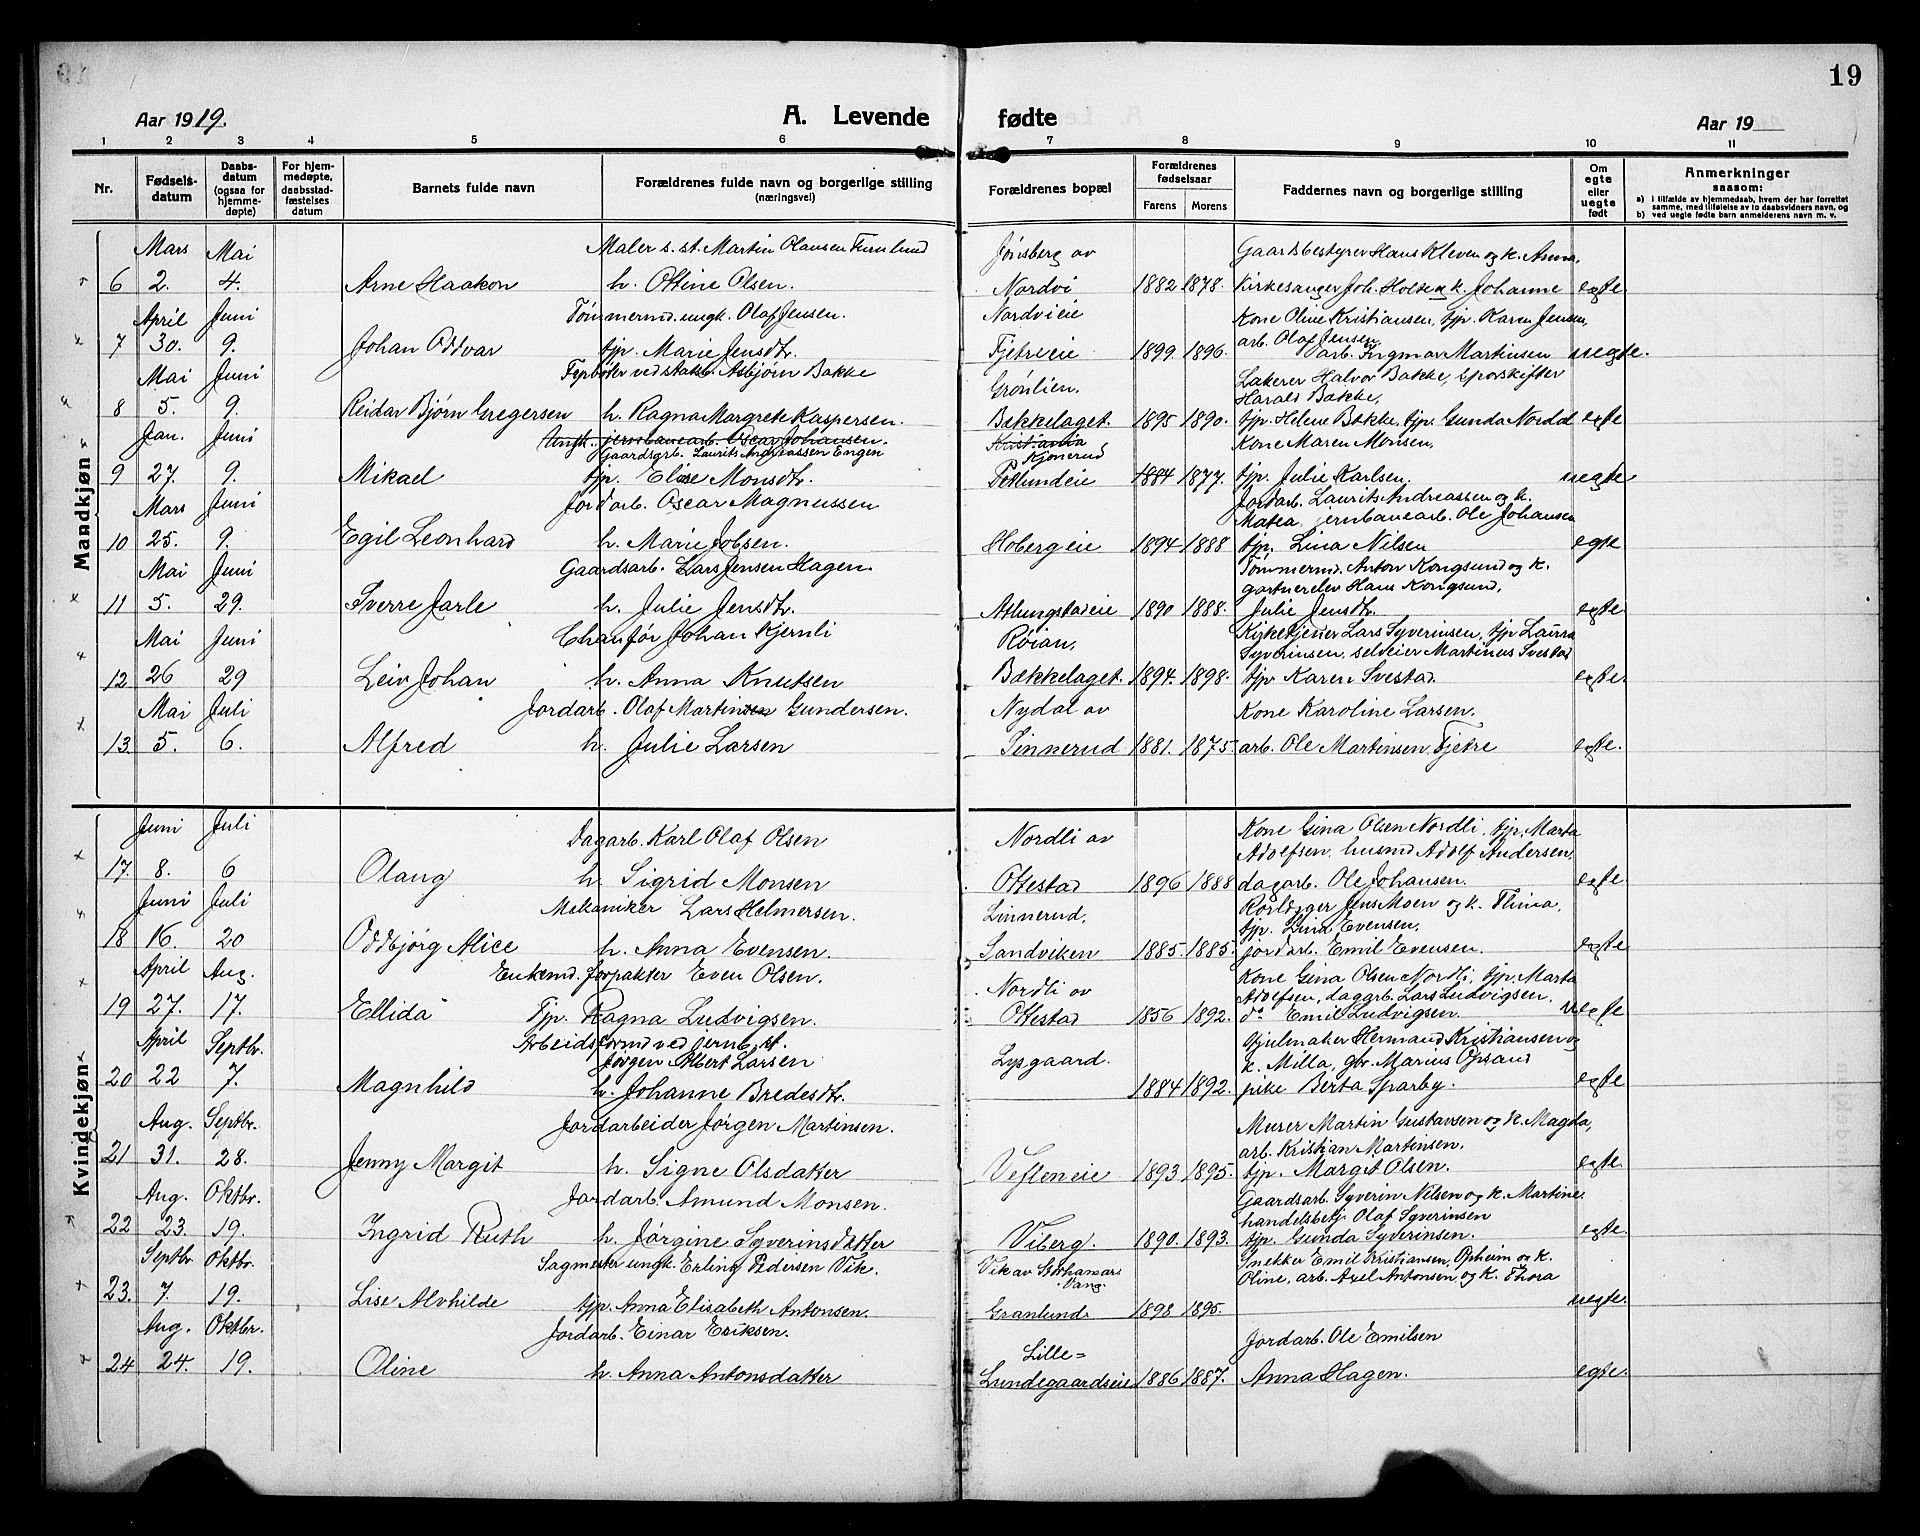 19
Aar 1919.
A. Levende fødte
Aar 19
1 2 3 4 5 6 7 8 9 10 11
Nr.
Fødselsdatum
Daabsdatum (ogsaa for hjemmedøpte)
For hjemmedøpte, daabsstadfæstelses datum
Barnets fulde navn
Forældrenes fulde navn og borgerlige stilling (næringsvei)
Forældrenes bopæl
Forældrenes fødselsaar
Farens Morens
Faddernes navn og borgerlige stilling
Om egte eller uegte født
Anmerkninger saasom:
a) I tilfælde av hjemmedaab, hvem der har forrettet samme, med tilføielse av to daabsvidners navn, og
b) ved uegte fødte barn anmelderens navn m. v.
Mandkjøn
Mars Mai Maler s. st. Martin Olausen Furulund Jønsberg av Gaardsbestyrer Hans Kleven og k. Anna,
6 2. 4. Arne Haakon h. Ottine Olsen. Nordvi 1882 1878. Kirkesanger Joh. Holte og k. Johanne egte
April Juni Tømmermd. ungk. Olaf Jensen. Nordvieie Kone Oline Kristiansen, tjp. Karen Jensen,
arb. Olaf Jensen,
7 30. 9. Johan Oddvar tjp. Marie Jensdtr. Tjetreeie 1899 1896. arb. Ingmar Martinsen uegte.
Mai Juni Asbjørn Bakke Grønlien. Lakerer Halvor Bakke, sporskifter
Harald Bakke,
8 5. 9. Reidar Bjørn Gregersen h. Ragna Margrete Kaspersen. Bækkelaget. 1895 1890. tjp. Helene Bakke, tjp. Gunda Nordal egte
Jan. Juni Ungk. jernbanearb. Oscar Johansen. Kristiania Kone Maren Monsen,
Gaardsgb. Laurits Andreassen Engen Kjonerud
9 27. 9. Mikael tjp. Elise Monsdtr. Peklundeie 1884 1877. tjp. Julie Karlsen. uegte
Mars Juni Jordarb. Oscar Magnussen Jordarb. Laurits Andreassen og k.
Matea, jernbanearb. Ole Johansen
10 25. 9. Egil Leonhard h. Marie Jobsen. Hobergeie 1894 1888 tjp. Lina Nilsen egte
Mai Juni Gaardsarb. Lars Jensen Hagen. Tømmermd. Anton Kongsund og k.
gartnerelev Hans Kongsund,
11 5. 29. Sverre Jarle h. Julie Jensdtr. Atlungstadeie 1890 1888. Julie Jensdtr. egte
Mai Juni Chauffør Johan Kjernli Røian, Kirketjener Lars Syverinsen, tjp Laura
Syverinsen, selveier Martinus Svestad
12 26 29 Leiv Johan h. Anna Knutsen Bækkelaget. 1894. 1898. tjp Karen Svestad egte
Mai Juli Jordarb. Olaf Martinsen Gundersen. Nydal av Kone Karoline Larsen.
13. 5. 6. Alfred h. Julie Larsen Sinnerud 1881. 1875. arb. Ole Martinsen, Tjetre egte.
Kvindekjøn
Juni Juli Dagarb. Karl Olaf Olsen Nordli av Kone Gina Olsen Nordli, tjp. Marta
Adolfsen, husmd Adolf Andersen,
17. 8. 6 Olaug h. Sigrid Monsen Ottestad 1896 1888 dagarb. Ole Johansen. egte
Juni Juli Mekaniker Lars Helmersen. Linnerud, Rørlægger Jens Moen og k. Thina,
tjp. Lina Evensen,
18 16. 20 Oddbjørg Alice h. Anna Evensen. Sandviken 1885. 1885. jordarb. Emil Evensen. egte
April Aug. Enkemd. forpakter Even Olsen. Nordli av Kone Gina Olsen Nordli, tjp. Marta
Adolfsen, dagarb. Lars Ludvigsen,
19 27. 17. Ellida Tjp. Ragna Ludvigsen. Ottestad 1856 1892. do Emil Ludvigsen. uegte
April Septbr. Arbeidsformd ved jernb. st. Lysgaard. Hjulmaker Hermand Kristiansen og
Jørgen Albert Larsen k. Milla, gbr. Marius Opsand
20 22 7. Magnhild h. Johanne Bredesdtr. 1884 1892. pike Berta Sparby. egte
Aug. Septbr. Jordarbeider Jørgen Martinsen. Murer Martin Gustavsen og k. Magda,
arb. Kristian Martinsen.
21 31. 28. Jenny Margit h. Signe Olsdatter Vefleneie 1893 1895. tjp. Margit Olsen. egte
Aug. Oktbr. Jordarb. Amund Monsen. Gaardsarb. Syverin Nilsen og k. Martine
handelsbetj. Olaf Syverinsen
22 23. 19. Ingrid Ruth h. Jørgine Syverinsdatter Viberg. 1890. 1893. tjp. Gunda Syverinsen. egte.
Septbr. Oktbr. Sagmester ungk. Erling Pedersen Vik. Vik av Storhamar Snekker Emil Kristiansen, Opheim og k.
Vang. Oline, arb. Axel Antonsen og k. Thora
23. 7. 19. Lise Alvhilde tjp. Anna Elisabeth Antonsen. Granlund 1898 1895. uegte.
Aug. Oktbr. Jordarb. Einar Eriksen. Lille= Jordarb. Ole Emilsen
24 24. 19. Oline h. Anna Antonsdatter Lundegaardseie 1886 1887. Anna Hagen. egte.